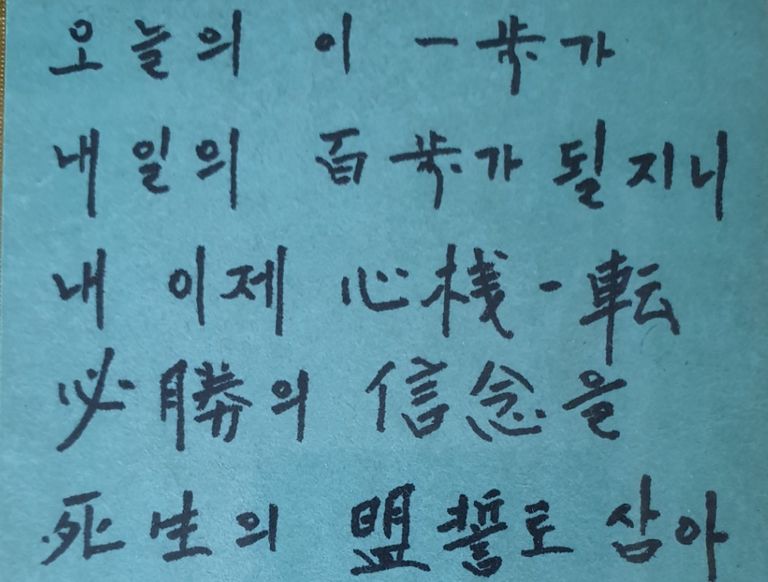 오늘의 이 一步가
내일의 百步가 될지니
내 이제 心栈一転
必勝의 信念을
死生의 盟誓로 삼아